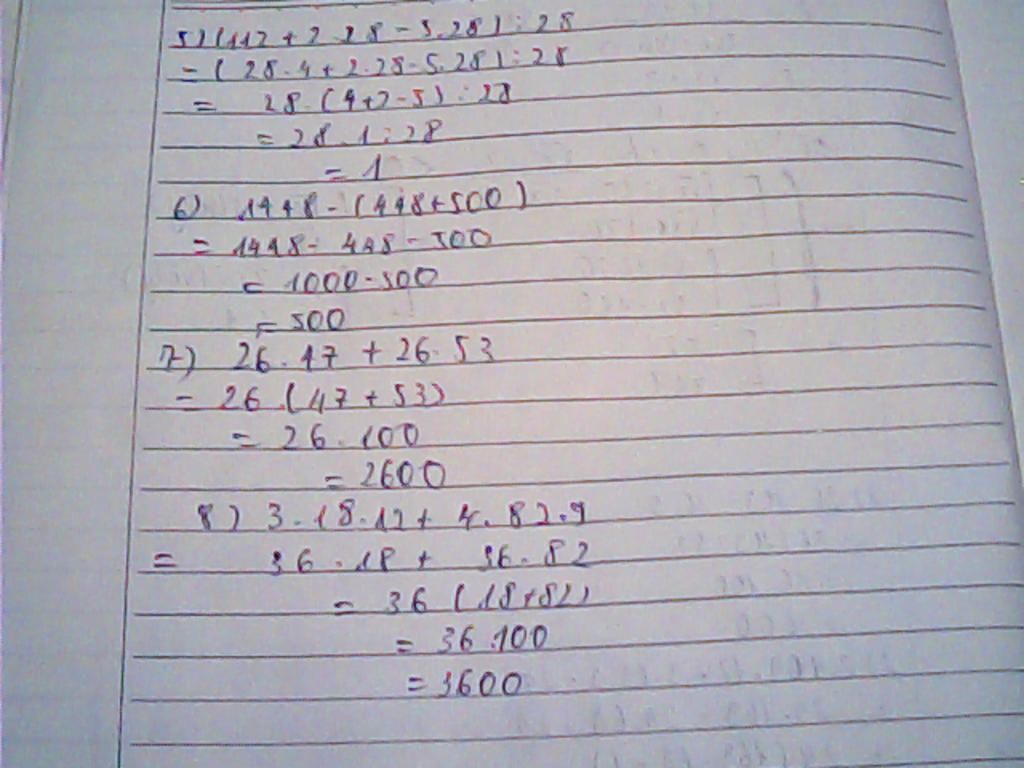 5) (112 + 2.28 - 5.28) : 28
= (28.4 + 2.28 - 5.28) : 28
= 28.(4+2-5) : 28
= 28.1 : 28
= 1
6) 1448 - (448+500)
= 1448 - 448 - 500
= 1000-500
= 500
7) 26.47 + 26.53
= 26 (47+53)
= 26.100
= 2600
8) 3.18.12 + 4.82.9
= 36.18 + 36.82
= 36 (18+82)
= 36.100
= 3600